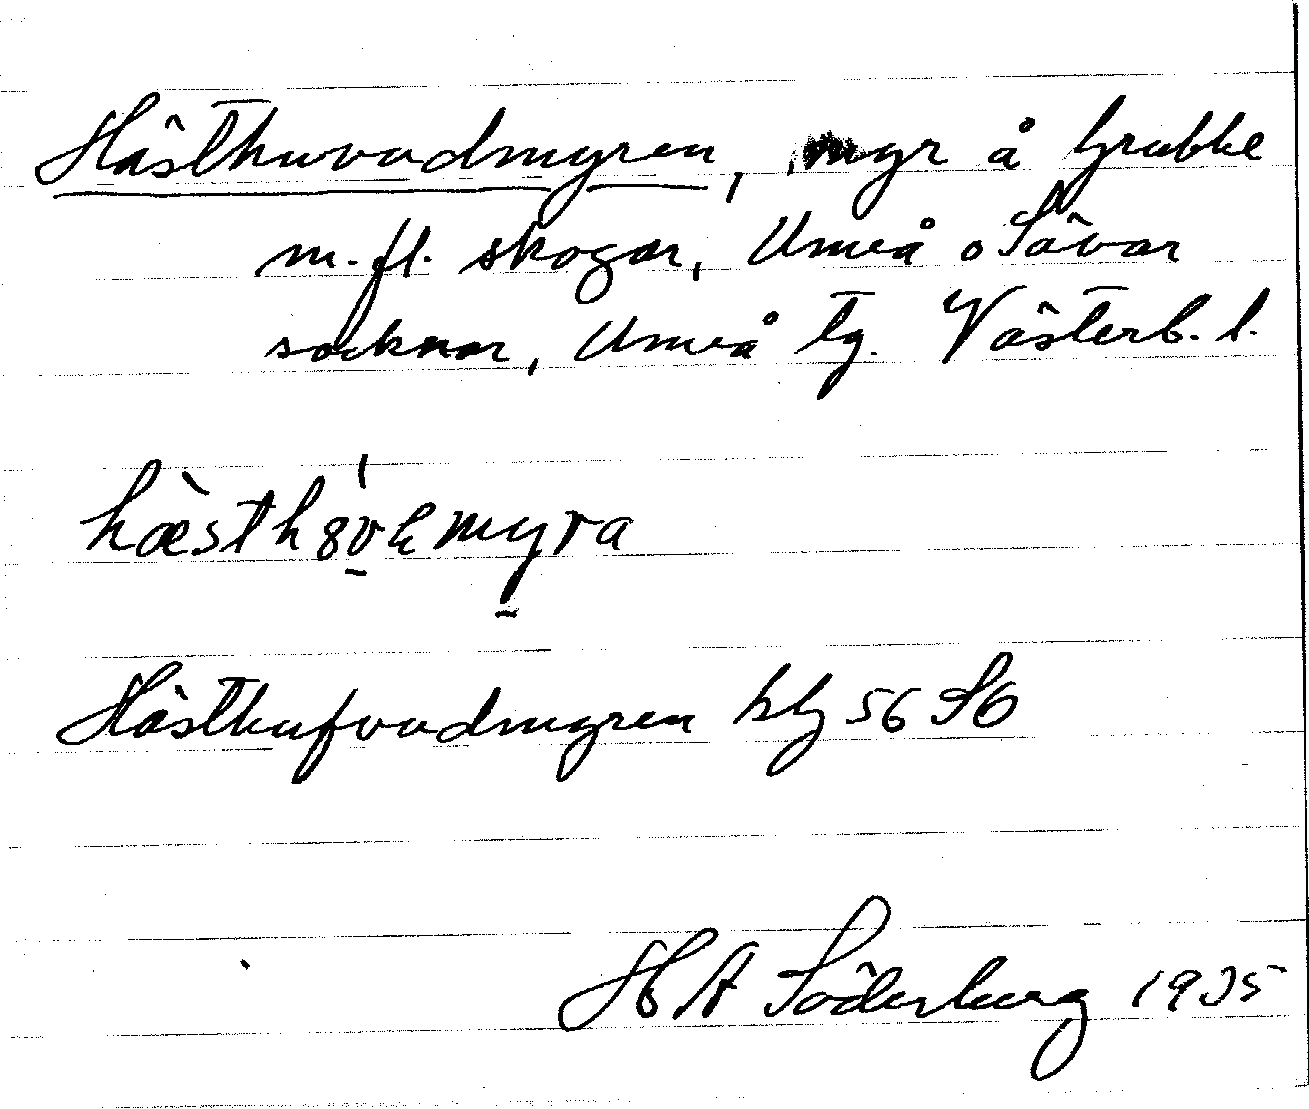 Hästhuvudmyren, myr å Grubbe
m. fl. skogar, Umeå o Sävar
socknar, Umeå tg. Västerb. l.
hæsth8vemyra
Hästhufvudmyren hbl 56 S6
H A Söderberg 1935